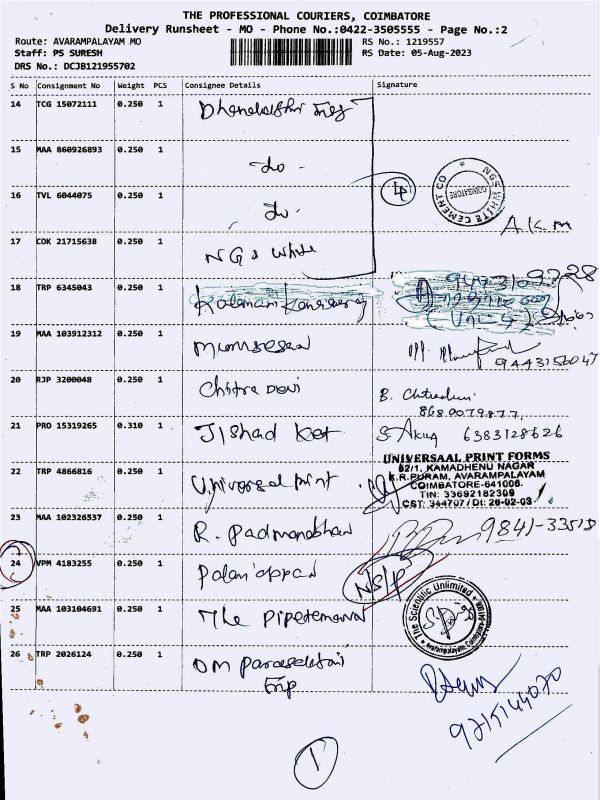 THE PROFESSIONAL COURIERS, COIMBATORE
Delivery Runsheet - MO - Phone No.:0422-3505555 - Page No.:2
Route: AVARAMPALAYAM MO
RS No.: 1219557
Staff: PS SURESH
RS Date: 05-Aug-2023
DRS No.: DCJB121955702
S No Consignment No Weight PCS Consignee Details Signature
14 TCG 15072111 0.250 1
15 MAA 860926893 0.250 1 do -
16 TVL 6044075 0.250 1 do -
4
NGS WHITE CEMENT CO
COIMBATORE
A.K.M
17 COK 21715638 0.250 1 NGS White
18 TRP 6345043 0.250 1
19 MAA 103912312 0.250 1
9443156047
20 RJP 3200048 0.250 1 Chitra Devi
8680079877
21 PRO 15319265 0.310 1 Jishad Ket
6383128626
22 TRP 4866816 0.250 1 Universal print
UNIVERSAAL PRINT FORMS
62/1, KAMADHENU NAGAR
K.R.PURAM, AVARAMPALAYAM
COIMBATORE-641006
TIN: 33692182309
CST: 344707 / Dt: 26-02-03
23 MAA 102326537 0.250 1 R. Padmanabhan
9841-33519
24 VPM 4183255 0.250 1 Palaniappan
N/S/P
25 MAA 103104691 0.250 1 The
The Scientific Unlimited
26 TRP 2026124 0.250 1 OM Parasakthi
9715144070
1